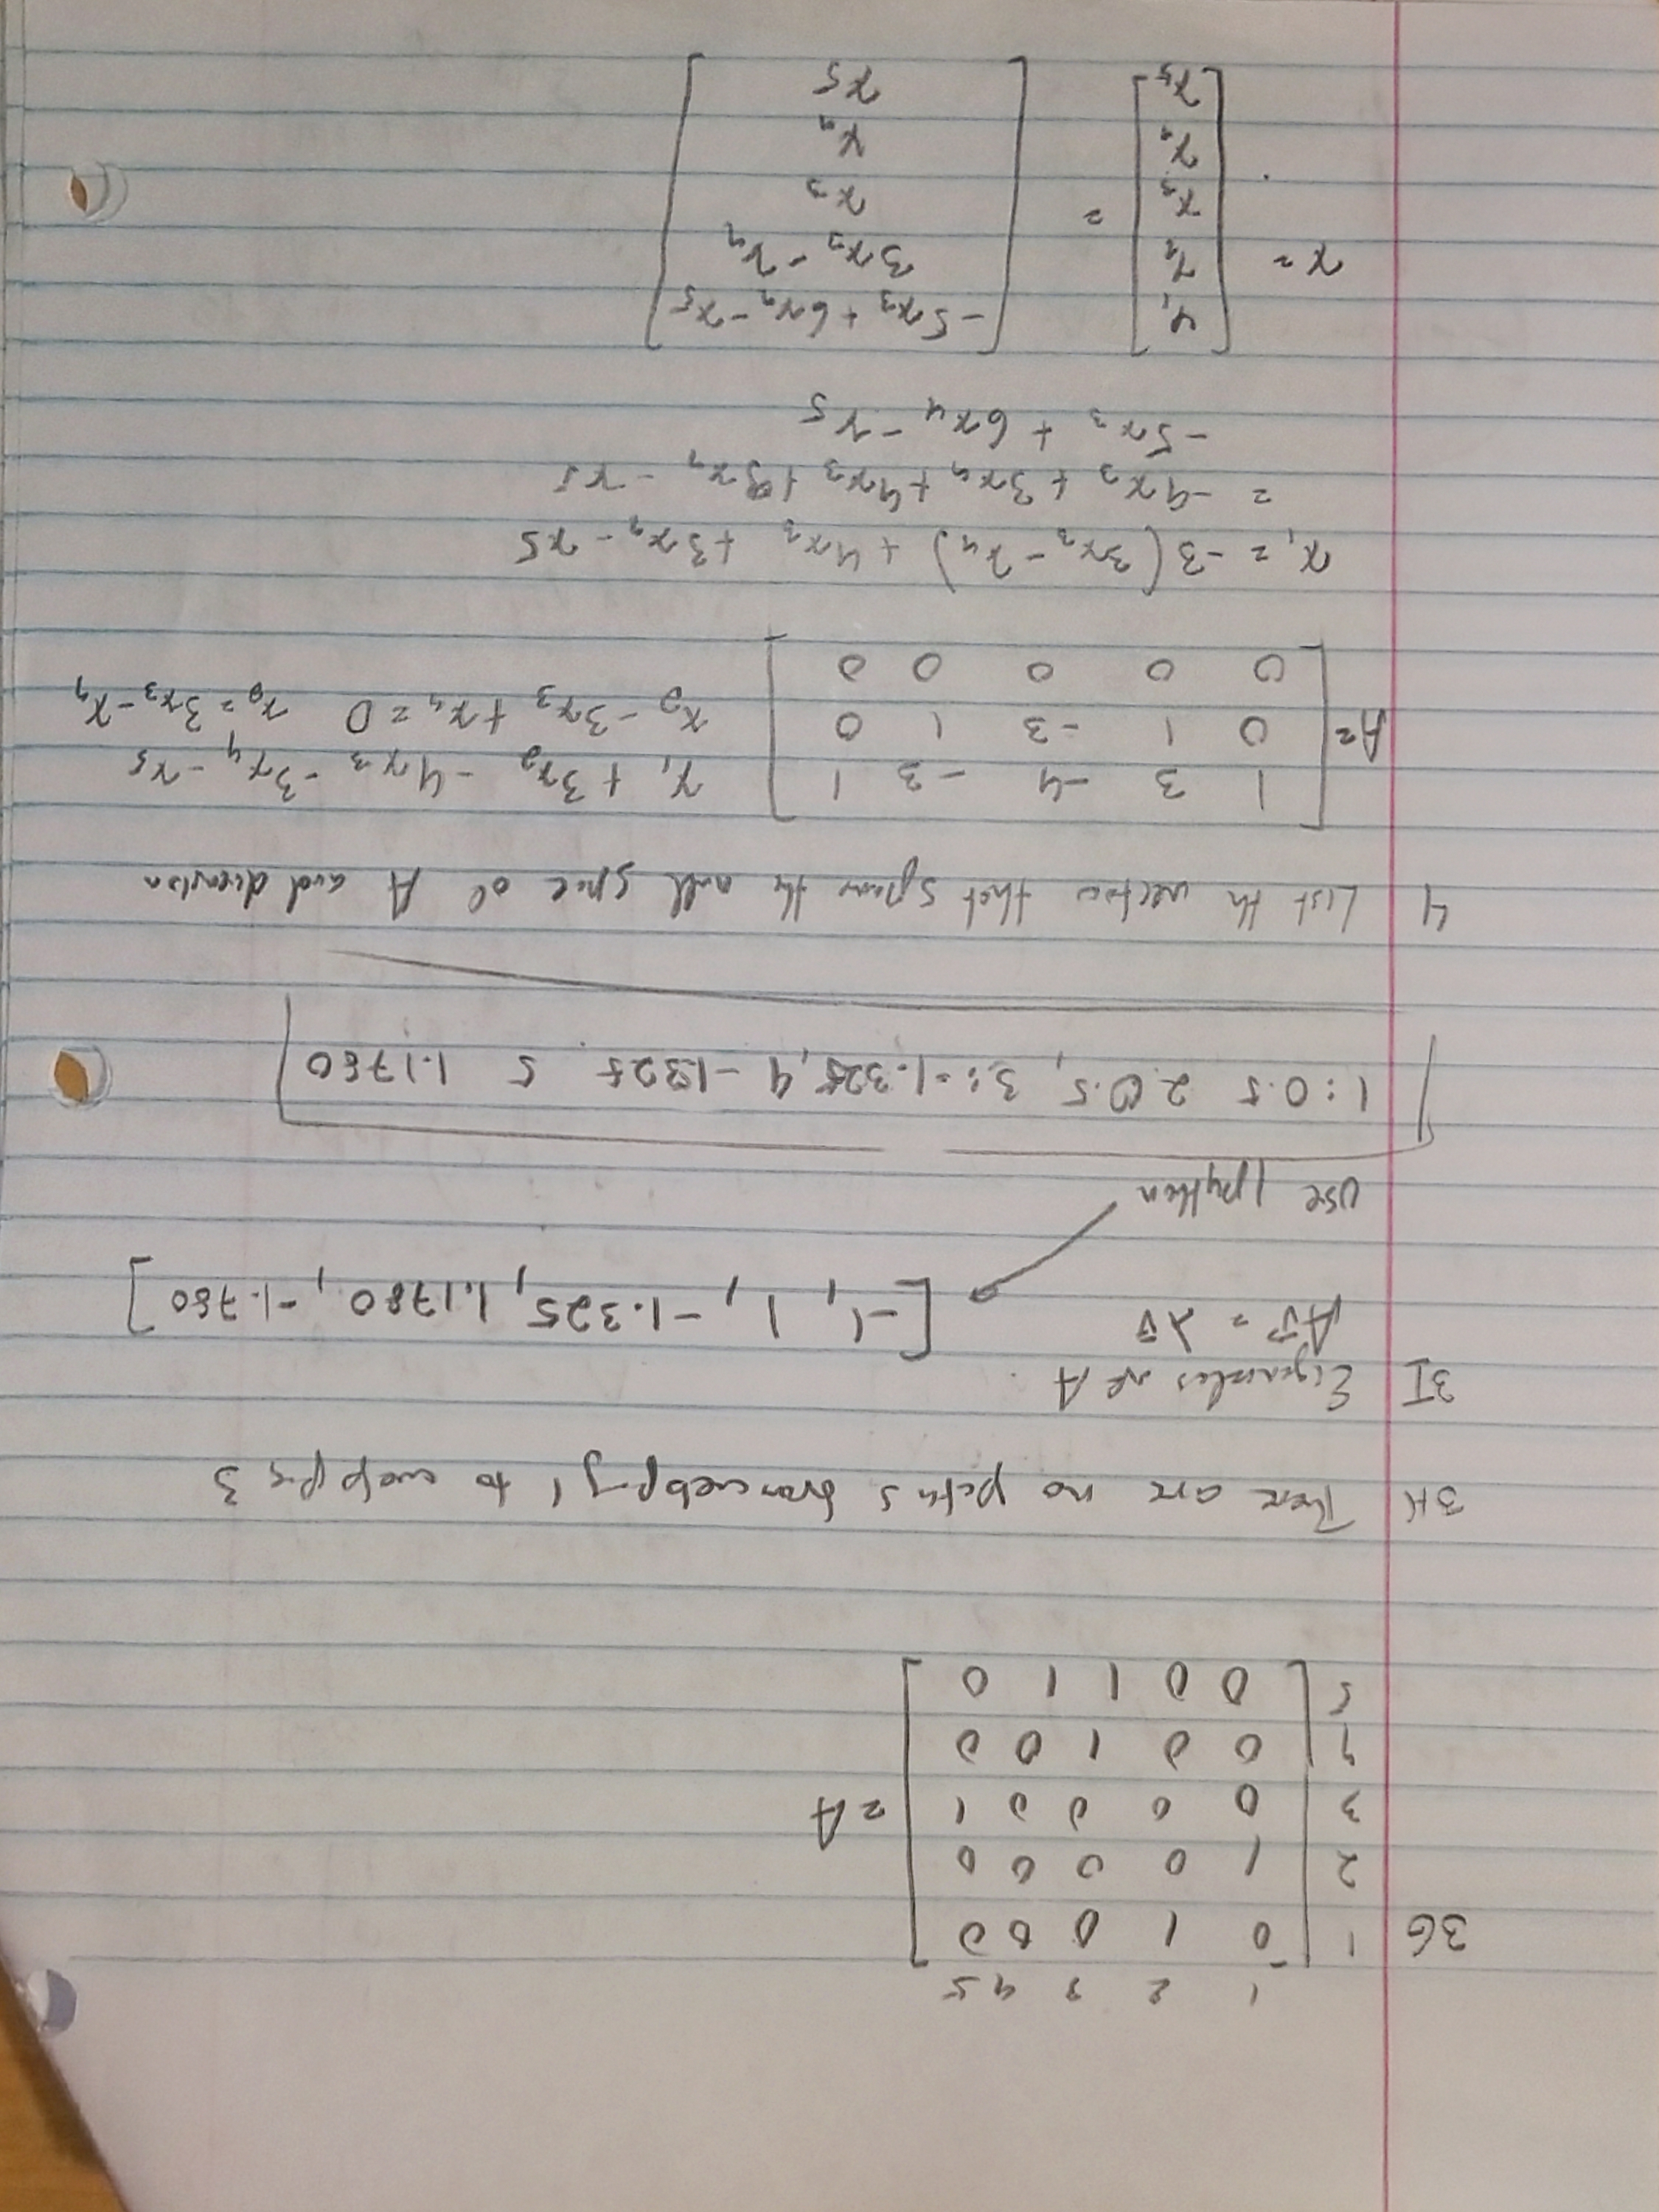 1 2 3 4 5
3G 1 0 1 0 0 0
2 1 0 0 0 0
3 0 0 0 0 1 = A
4 0 0 1 0 0
5 0 0 1 1 0
3H There are no paths from webpg 1 to webpg 3
3I Eigenvalues of A
Av̄ = λv̄ [-1, 1, -1.325, 1.1780, -1.780]
use python
1:0.5 2 0.5, 3:=1.325, 4 -1.325 5 1.1780
4 List the vectors that span the null space of A and dimension
A= 1 3 -4 -3 1 x₁ + 3x₂ - 4x₃ - 3x₄ - x5
0 1 -3 1 0 x₂ - 3x₃ + x₄ = 0 x₂ = 3x₃ - x₄
0 0 0 0 0
x₁ = -3(3x₃ - x₄) + 4x₃ + 3x₄ - x5
= -9x₃ + 3x₄ + 4x₃ + 3x₄ - x5
-5x₃ + 6x₄ - x5
x₁ -5x₃ + 6x₄ - x5
x = x₂ 3x₃ - x₄
x₃ = x₃
x₄ x₄
x₅ x5